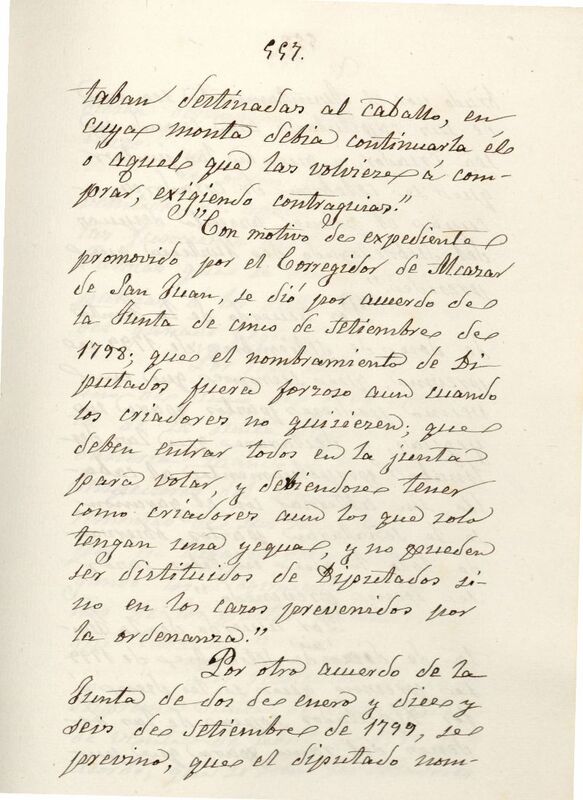 557.
taban destinadas al caballo, en
cuya monta debia continuarla él
o aquel que las volvieze á com-
prar, exigiendo contraguias."
"Con motivo de expediente
promovido por el Corregidor de Alcazar
de San Juan, se dió por acuerdo de
la Junta de cinco de setiembre de
1798; que el nombramiento de Di
putados fuera forzoso aun cuando
los criadores no quiziezen; que
deben entrar todos en la junta
para votar, y debiendose tener
como criadores aun los que solo
tengan una yegua, y no pueden
ser distituidos de Diputados si-
no en los cazos prevenidos por
la ordenanza."
Por otro acuerdo de la
Junta de dos de enero y diez y
seis de setiembre de 1799, se
previno, que el diputado nom-